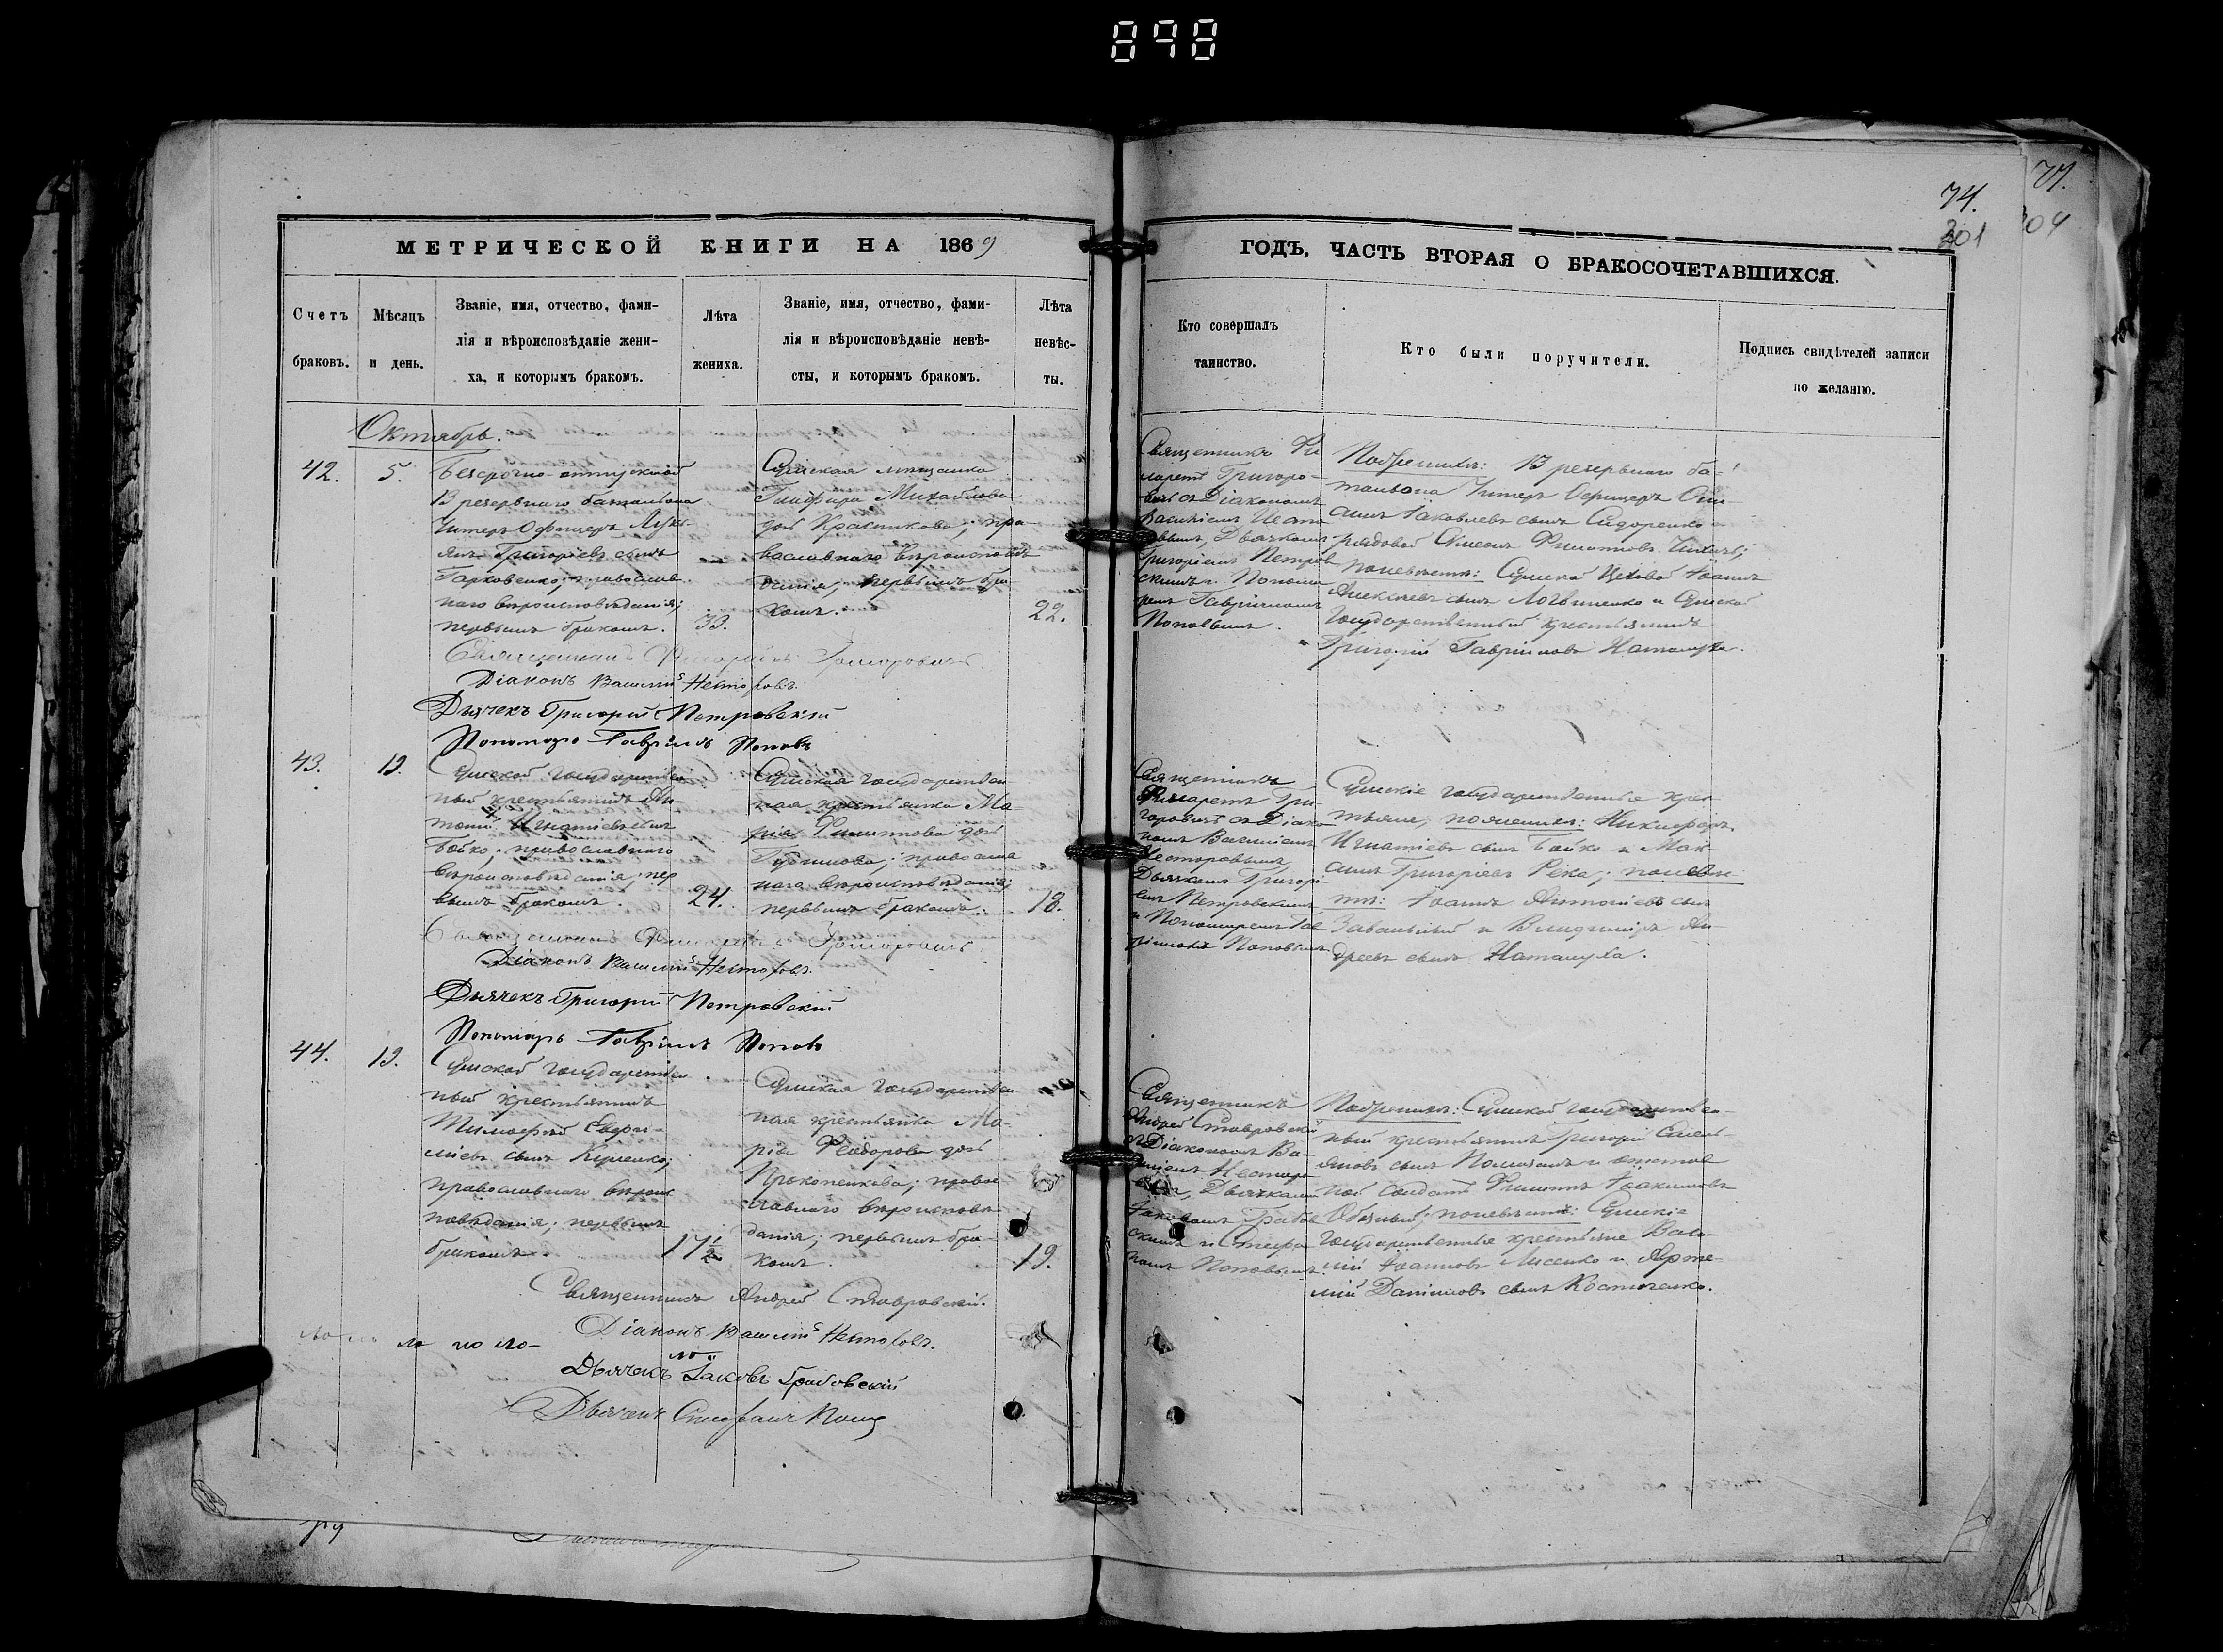 898
74.
201
77.
304
МЕТРИЧЕСКОЙ КНИГИ НА 1869
ГОДЪ, ЧАСТЬ ВТОРАЯ О БРАКОСОЧЕТАВШИХСЯ.
Счетъ
браковъ.
Мѣсяцъ
и день.
Званіе, имя, отчество, фами-
лія и вѣроисповѣданіе жени-
ха, и которымъ бракомъ.
Лѣта
жениха.
Званіе, имя, отчество, фами-
лія и вѣроисповѣданіе невѣ-
сты, и которымъ бракомъ.
Лѣта
невѣс-
ты.
Кто совершалъ
таинство.
Кто были поручители.
Подпись свидѣтелей записи
по желанію.
Октябрь.
42.
5.
Безсрочно-отпускной
резервнаго баталіона
Унтеръ Офицеръ Лукь-
янъ Григорьевъ сынъ
Гарковенко; православ-
наго вѣроисповѣданія;
первымъ бракомъ.
33.
Сумская мѣщанка
Гликерія Михайлова
дочь Красникова; пра-
вославнаго вѣроисповѣ-
данія; первымъ бра-
комъ.
22.
Священникъ Фи
ларетъ Григоро-
вичъ съ Діакономъ
Василіемъ Несто
ровымъ, Дьячкомъ
Григоріемъ Петров
скимъ и Понома
ремъ Гавріиломъ
Поповымъ.
По женихѣ: резервнаго ба-
таліона Унтеръ Офицеръ
Яковлевъ сынъ Сидоренко и
рядовой Симеонъ Филиповъ
по невѣстѣ: Сумской Цеховой Іоаннъ
Алексѣевъ сынъ Логвиненко и Сумской
Государственный крестьянинъ
Григорій Гавріиловъ Наталуха.
Священникъ Филаретъ Григоровичъ
Діаконъ Василій Несторовъ.
Дьячекъ Григорій Петровскій
Пономарь Гавріилъ Поповъ
43.
19.
Сумской государствен
ный крестьянинъ Ан-
тоній Игнатіевъ сынъ
Бойко; православнаго
вѣроисповѣданія; пер
вымъ бракомъ.
24.
Сумская государствен-
ная крестьянка Ма-
рія Филиппова дочь
Гудимова; православ
наго вѣроисповѣданія;
первымъ бракомъ.
18.
Священникъ
Филаретъ Гри-
горовичъ съ Діако
номъ Василіемъ
Несторовымъ,
Дьячкомъ Григорі
емъ Петровскимъ
и Пономаремъ Гав
ріиломъ Поповымъ.
Сумскіе государственные крес
тьяне, по женихѣ: Никифоръ
Игнатіевъ сынъ Бойко и Мак-
симъ Григоріевъ Река; по невѣс-
тѣ: Іоаннъ Антоніевъ сынъ
и Владиміръ Ан-
дреевъ сынъ Наталуха.
Священникъ Филаретъ Григоровичъ
Діаконъ Василій Несторовъ.
Дьячекъ Григорій Петровскій
Пономарь Гавріилъ Поповъ
44.
19.
Сумской государствен
ный крестьянинъ
Тимофей
сынъ Куценко;
православнаго вѣроис
повѣданія; первымъ
бракомъ.
17½
Сумская государствен
ная крестьянка Ма-
рія Ѳеодорова дочь
Прокопенкова; правос
лавнаго вѣроисповѣ-
данія; первымъ бра-
комъ.
19.
Священникъ
Андрей Ставровскій
съ Діакономъ Ва-
силіемъ Несторо
вымъ, Дьячками
Іаковомъ Грабов
скимъ и Стефа
номъ Поповымъ.
По женихѣ: Сумской государствен-
ный крестьянинъ Григорій Емель-
яновъ сынъ
солдатъ Филиппъ Іоакимовъ
по невѣстѣ: Сумскіе
государственные крестьяне Васи-
лій Іоанновъ Лисенко и Арте-
мій Даніиловъ сынъ Костюченко.
Священникъ Андрей Ставровскій.
Діаконъ Василій Несторовъ.
Дьячекъ Іаковъ Грабовскій
Дьячекъ Стефанъ Попов